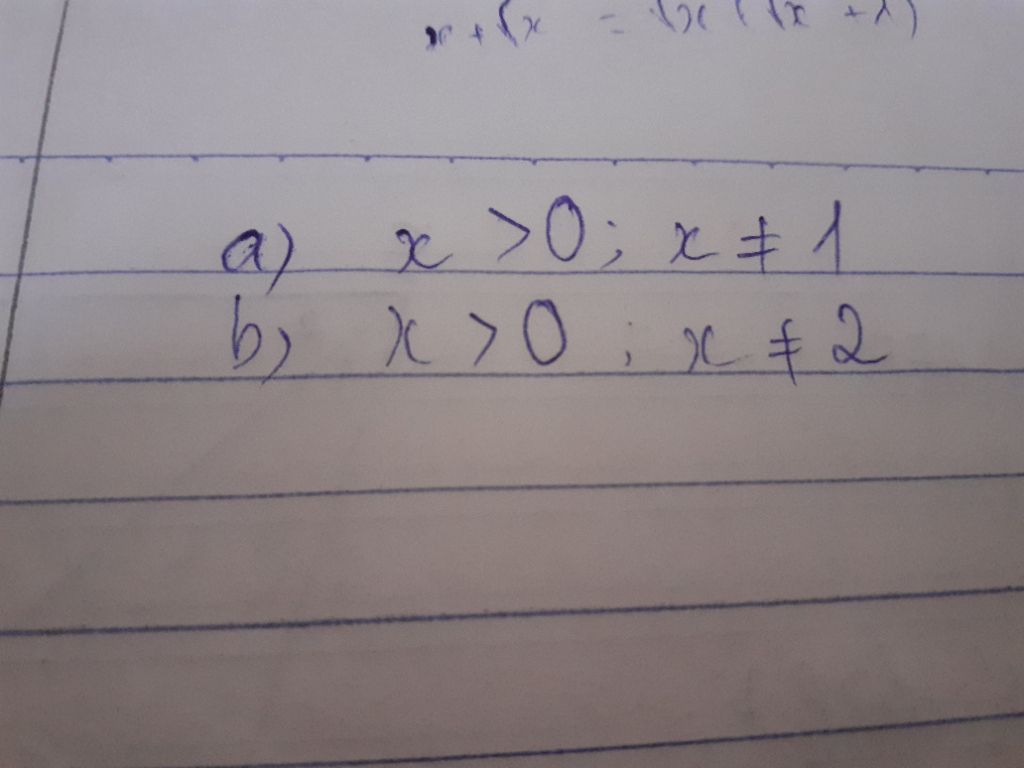 x + √x = √x (√x + 1)
a) x > 0 ; x ≠ 1
b) x > 0 ; x ≠ 2